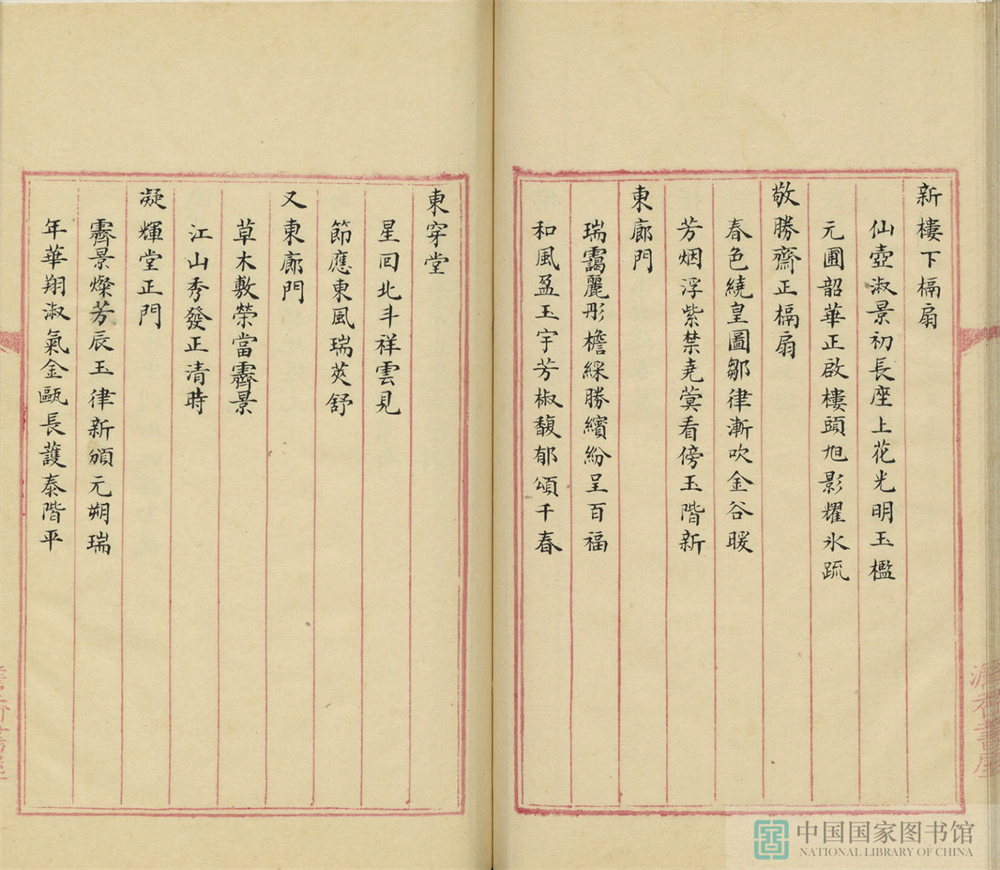 新樓下槅扇
仙壺淑景初長座上花光明玉檻
元圃韶華正啟樓頭旭影耀氷疏
敬勝齋正槅扇
春色繞皇圖鄒律漸吹金谷暖
芳烟浮紫禁堯蓂看傍玉階新
東廊門
瑞靄麗彤檐綵勝繽紛呈百福
和風盈玉宇芳椒馥郁頌千春
東穿堂
星回北斗祥雲見
節應東風瑞莢舒
又東廊門
草木敷榮當霽景
江山秀發正清時
凝輝堂正門
霽景燦芳辰玉律新頒元朔瑞
年華翔淑氣金甌長護泰階平
中国国家图书馆
NATIONAL LIBRARY OF CHINA